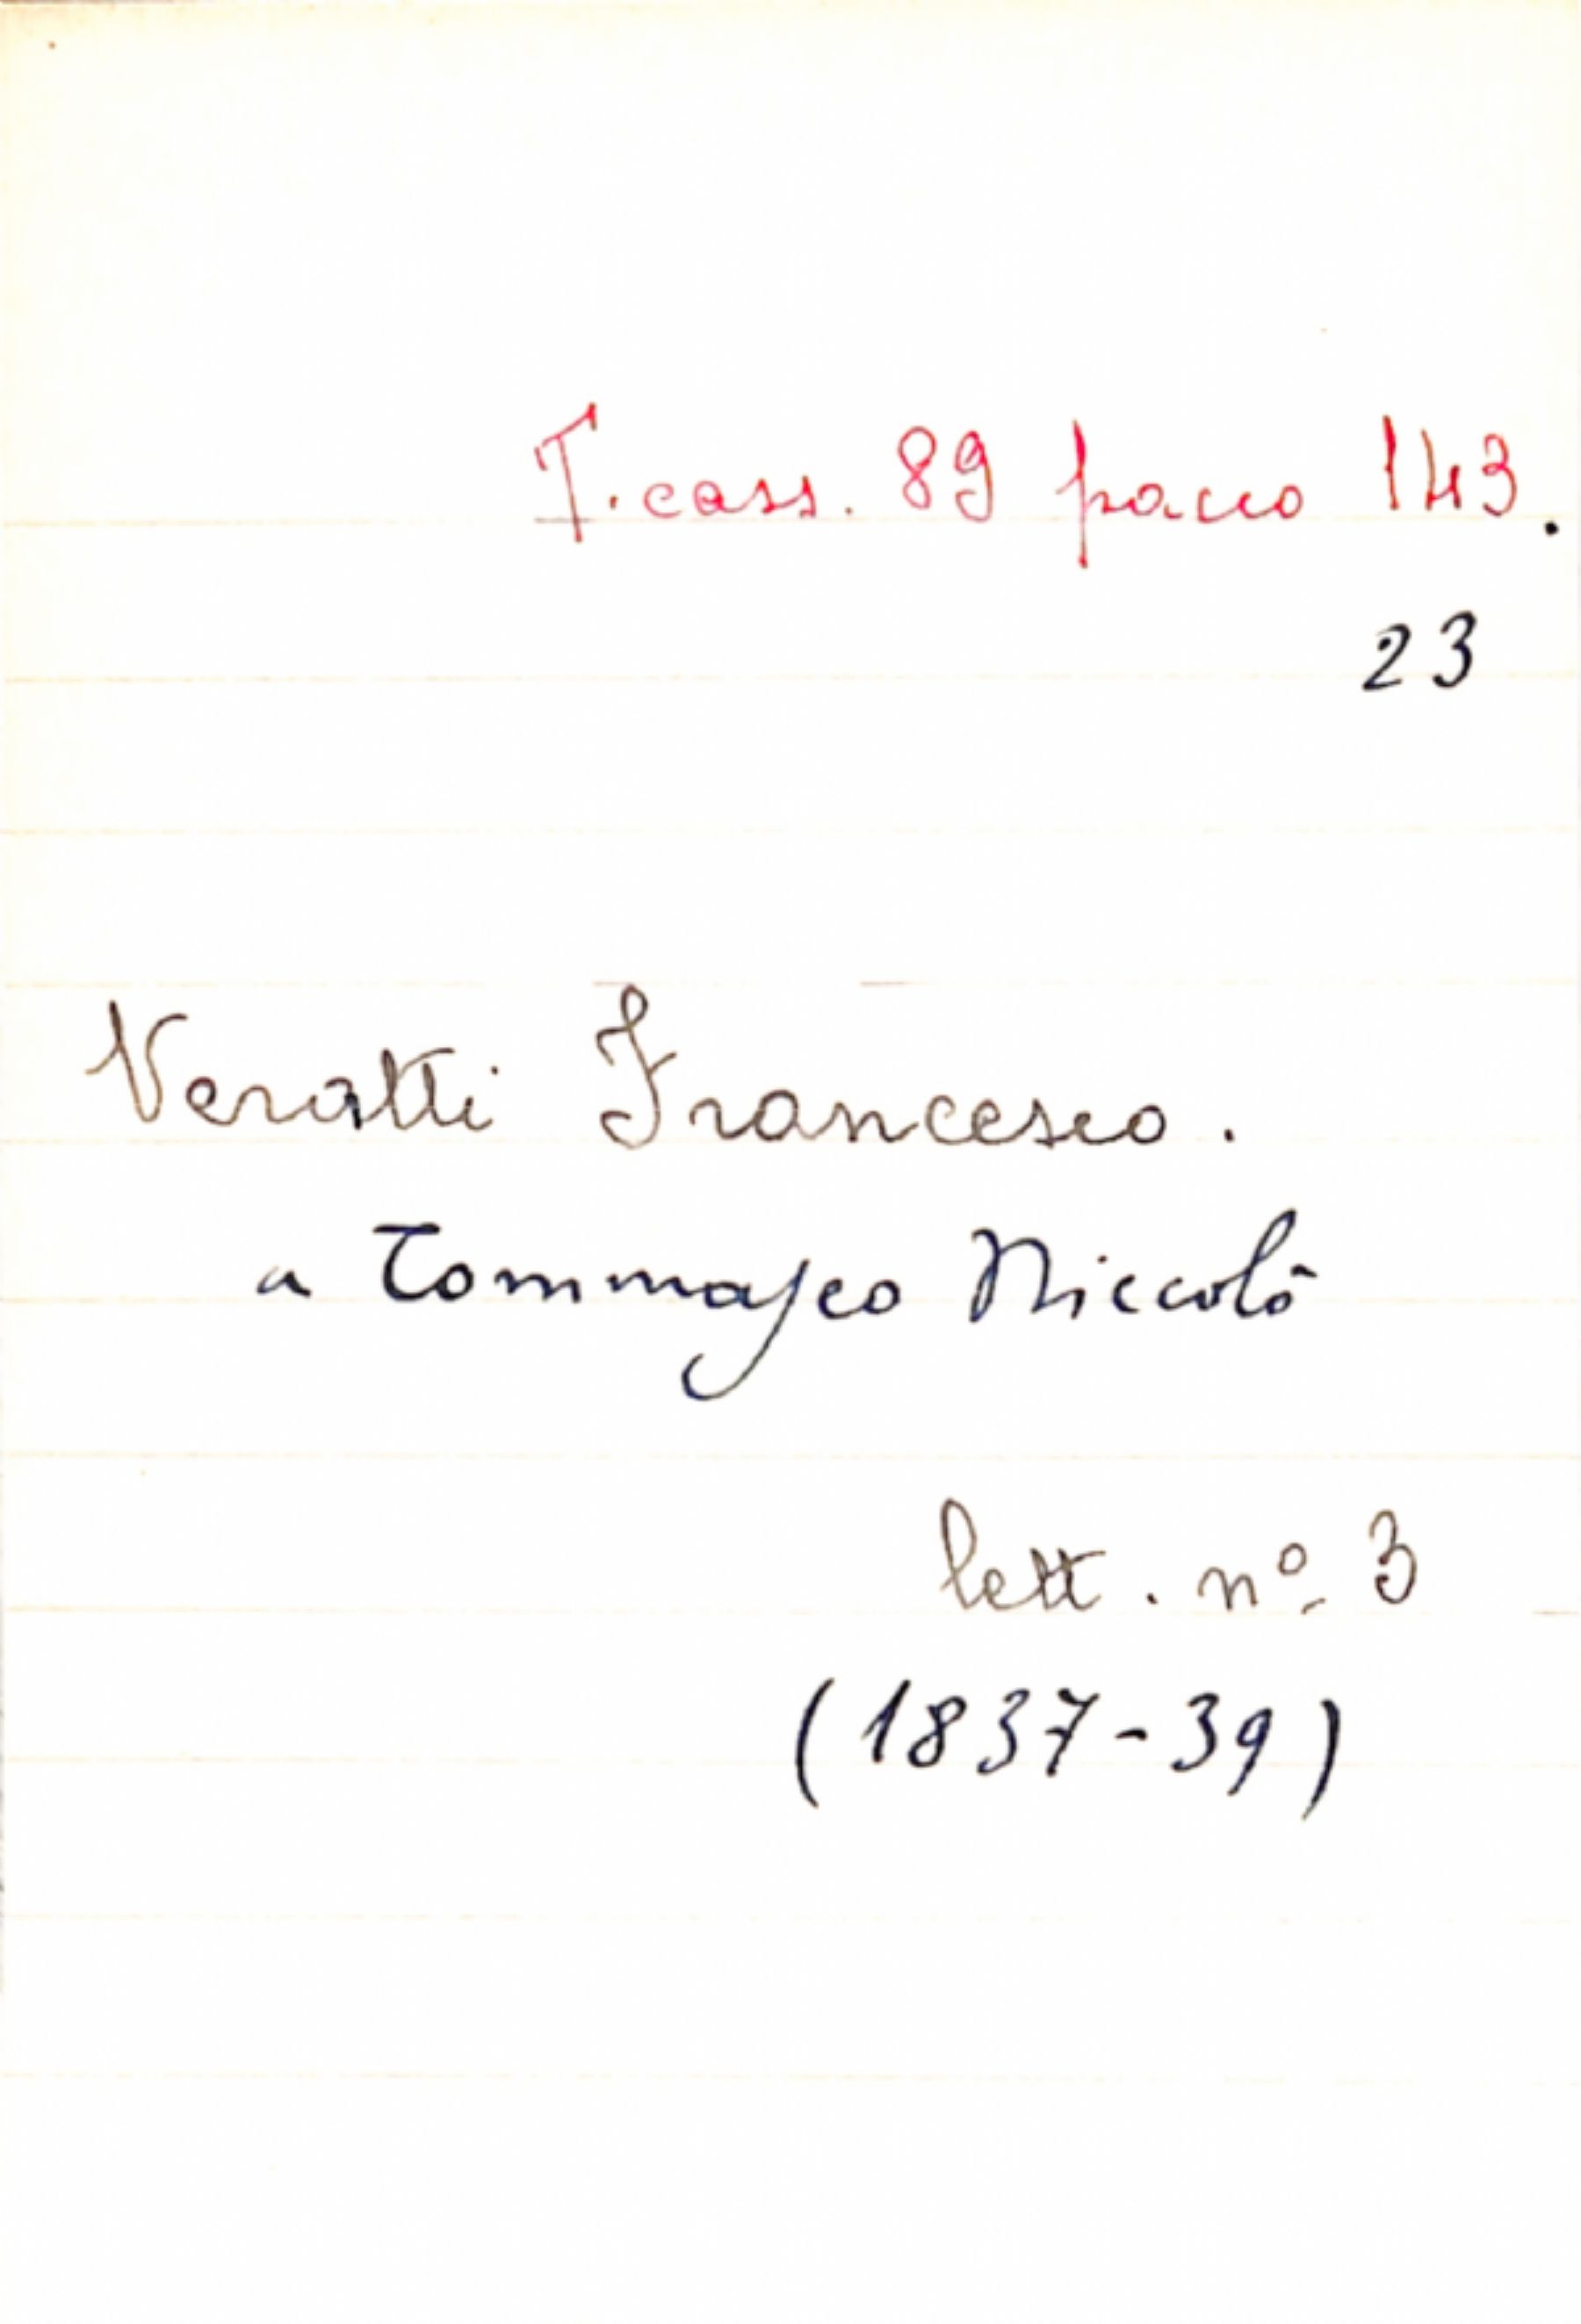 T. cass. 89 pacco 143.
23
Veratti Francesco.
a Tommaseo Niccolò
lett. nº 3
(1837-39)